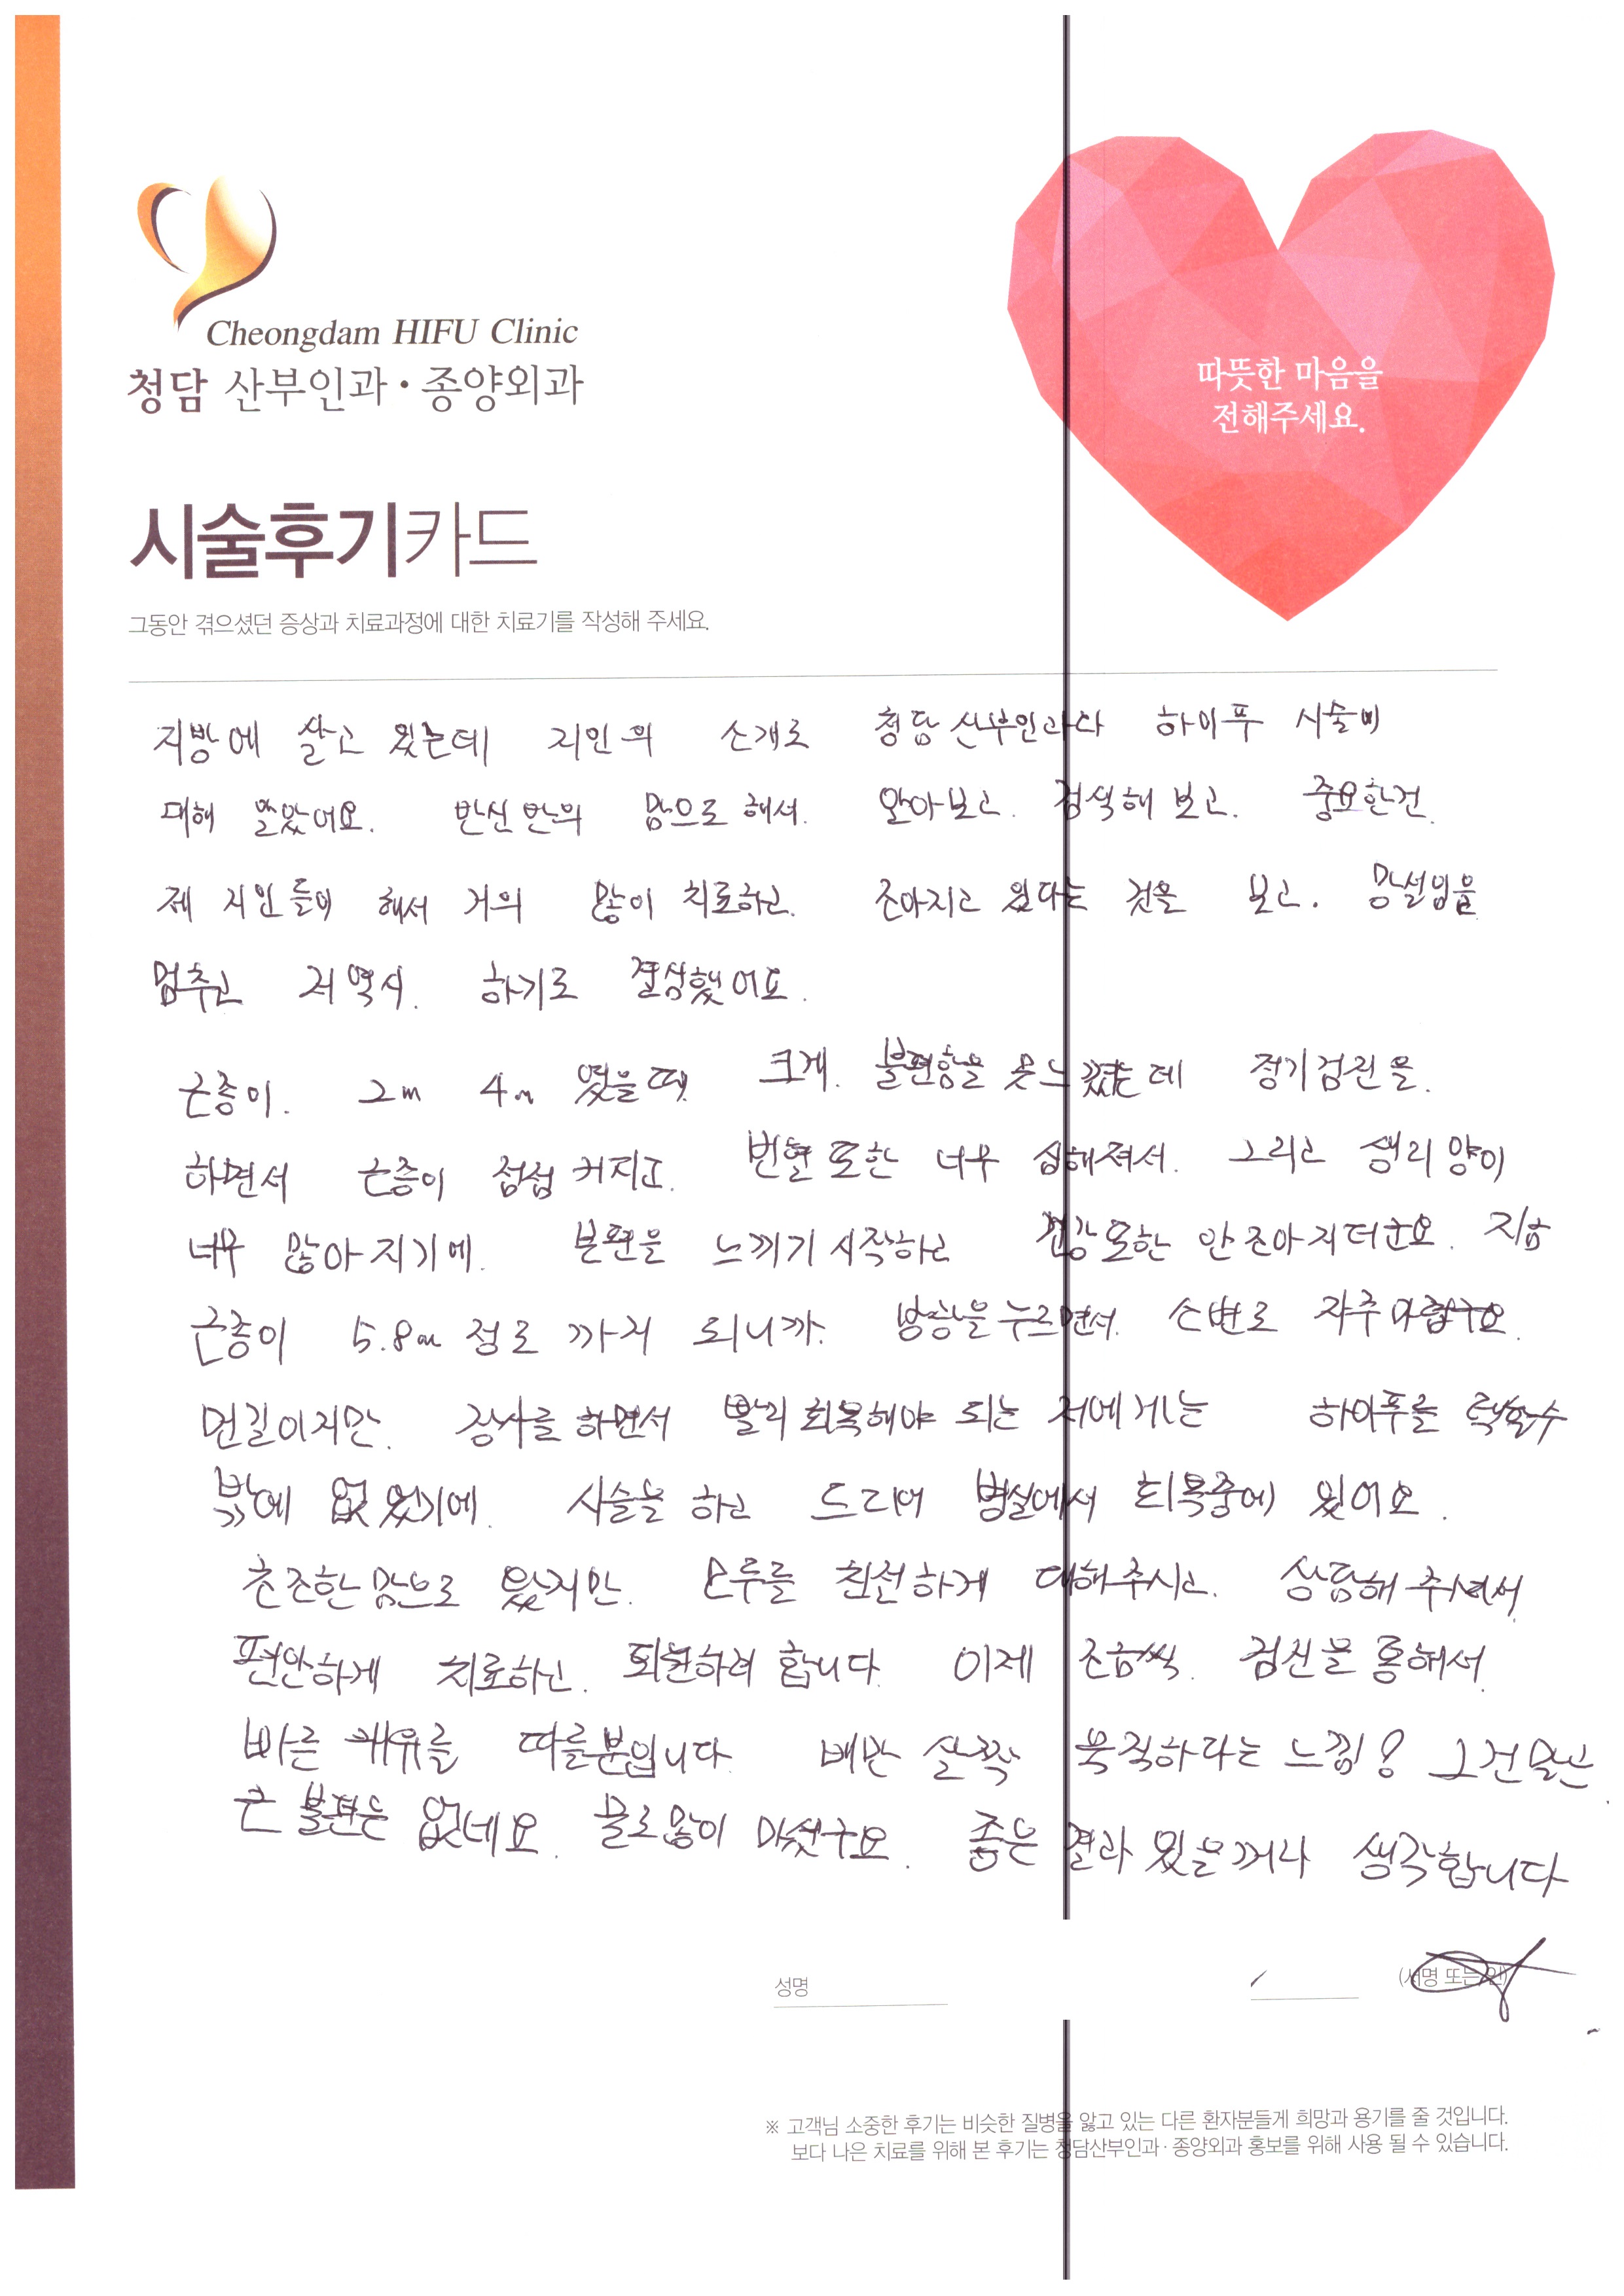 Cheongdam HIFU Clinic
청담 산부인과·종양외과
따뜻한 마음을
전해주세요.
시술후기카드
그동안 겪으셨던 증상과 치료과정에 대한 치료기를 작성해 주세요.
지방에 살고 있는데 지인의 소개로 청담산부인과라 하이푸 시술비
대해 알았어요. 반신반의 맘으로 해서. 알아보고. 검색해 보고. 중요한건.
제 지인들이 해서 거의 많이 치료하고. 조아지고 있다는 것을 보고. 망설임을
멈추고 저 역시. 하기로 결심했어요.
근종이. 2m 4m 였을때. 크게. 불편함을 못느꼈는데 정기검진을.
하면서 근종이 점점 커지고. 빈혈 또한 너무 심해져서. 그리고 생리 양이
너무 많아지기에. 불편을 느끼기 시작하고 건강 또한 안 조아지더군요. 지금
근종이 5.8m 정도 까지 되니까. 방광을 누르면서. 소변도 자주 마렵구요.
먼길이지만. 장사를 하면서 빨리 회복해야 되는 저에게는 하이푸를 택할수
밖에 없었기에. 시술을 하고 드디어 병실에서 회복중에 있어요.
초조한 맘으로 왔지만. 모두를 친절하게 대해주시고. 상담해 주셔서.
편안하게 치료하고. 퇴원하려 합니다. 이제 조금씩. 검진을 통해서.
빠른 쾌유를 따를뿐입니다. 배만 살짝 묵직하다는 느낌? 그건말곤
큰 불편은 없네요. 물도많이 마셨구요. 좋은 결과 있을꺼라 생각합니다
성명
(서명 또는 인)
※ 고객님 소중한 후기는 비슷한 질병을 앓고 있는 다른 환자분들게 희망과 용기를 줄 것입니다.
보다 나은 치료를 위해 본 후기는 청담산부인과·종양외과 홍보를 위해 사용 될 수 있습니다.